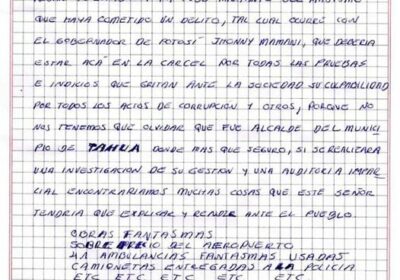 QUE HAYA COMETIDO UN DELITO, TAL CUAL OCURRE CON
EL GOBERNADOR DE POTOSÍ JHONNY MAMANI, QUE DEBERIA
ESTAR ACÁ EN LA CARCEL POR TODAS LAS PRUEBAS
E INDICIOS QUE GRITAN ANTE LA SOCIEDAD SU CULPABILIDAD
POR TODOS LOS ACTOS DE CORRUPCION Y OTROS, PORQUE NO
NOS TENEMOS QUE OLVIDAR QUE FUE ALCALDE DEL MUNICI
PIO DE TAHUA DONDE MAS QUE SEGURO, SI SE REALIZARA
UNA INVESTIGACION DE SU GESTION Y UNA AUDITORIA IMPAR
CIAL ENCONTRARIAMOS MUCHAS COSAS QUE ESTE SEÑOR
TENDRIA QUE EXPLICAR Y RENDIR ANTE EL PUEBLO.
OBRAS FANTASMAS
SOBREPRECIO DEL AEROPUERTO
41 AMBULANCIAS FANTASMAS USADAS
CAMIONETAS ENTREGADAS A LA POLICIA
ETC ETC ETC ETC ETC